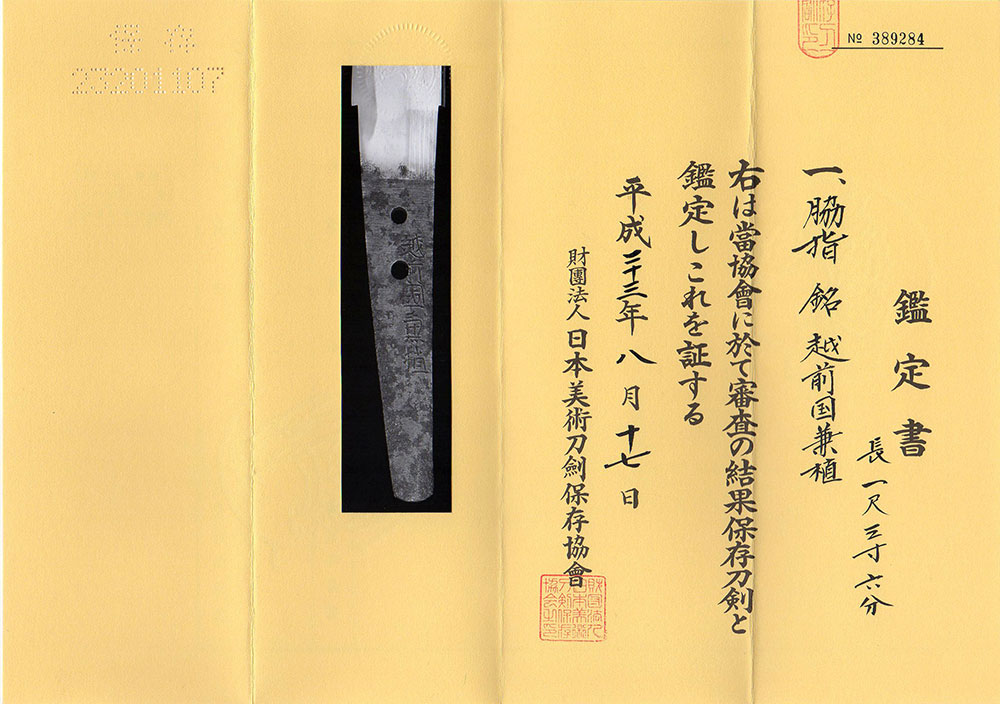 № 389284
鑑定書
長 一尺三寸六分
一、脇指 銘 越前国兼植
右は當協會に於て審査の結果保存刀剣と
鑑定しこれを証する
平成二十三年八月十七日
財團法人 日本美術刀劍保存協會
財団法人日本美術刀剣保存協会之印
越前国兼植
保存
23201107